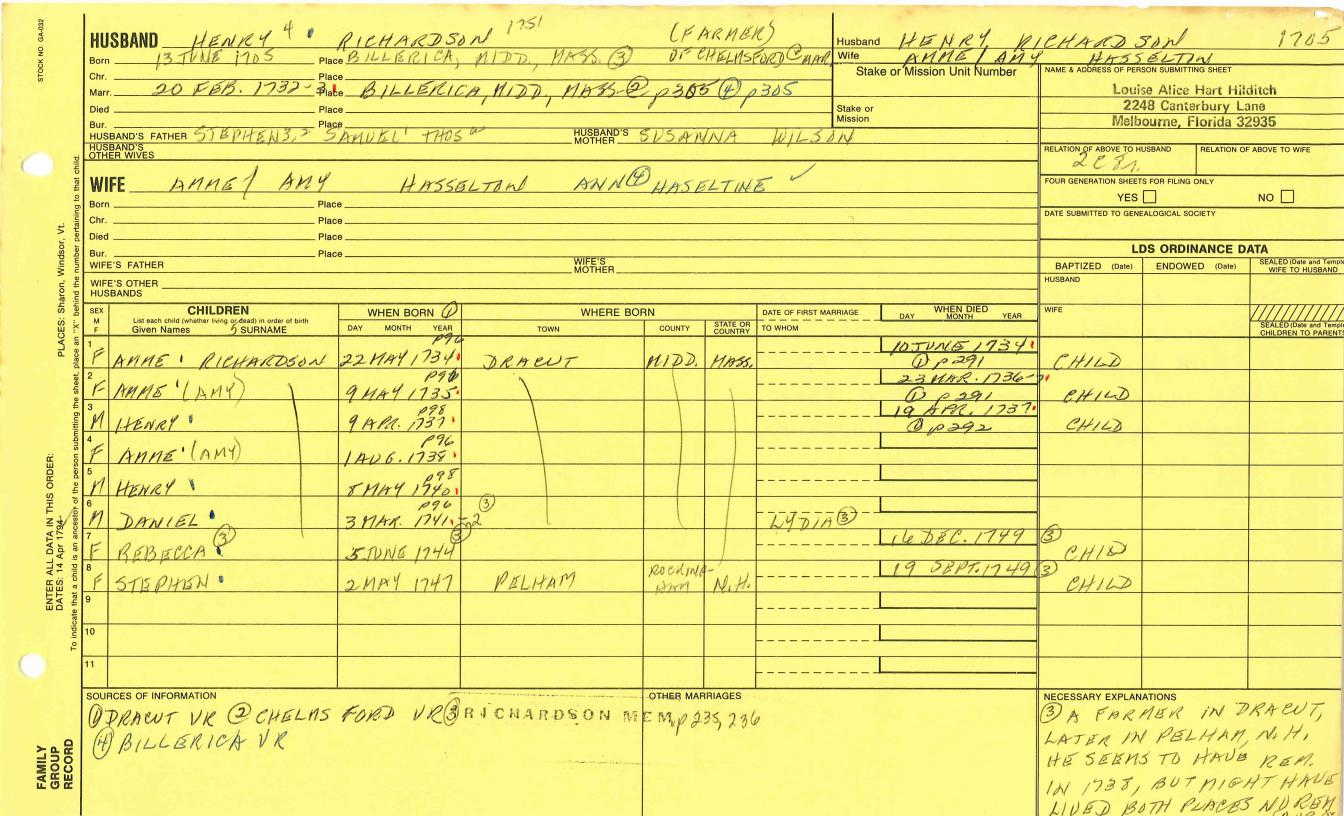 STOCK NO. GA-032
HUSBAND HENRY 4 RICHARDSON 1751 (FARMER)
Born 13 JUNE 1705 Place BILLERICA, MIDD, MASS. ③ OF CHELMSFORD @ MAR.
Chr. Place
Marr. 20 FEB. 1732-3 Place BILLERICA, MIDD, MASS ② p305 ④ p305
Died Place
Bur. Place
HUSBAND'S FATHER STEPHEN 3, 2 SAMUEL 1 THOS HUSBAND'S MOTHER SUSANNA WILSON
HUSBAND'S OTHER WIVES
Husband HENRY, RICHARDSON 1705
Wife AMME / AMY HASSELTIN
Stake or Mission Unit Number
Stake or Mission
NAME & ADDRESS OF PERSON SUBMITTING SHEET
Louise Alice Hart Hilditch
2248 Canterbury Lane
Melbourne, Florida 32935
RELATION OF ABOVE TO HUSBAND RELATION OF ABOVE TO WIFE
FOUR GENERATION SHEETS FOR FILING ONLY
YES NO
DATE SUBMITTED TO GENEALOGICAL SOCIETY
WIFE AMME / AMY HASSELTON ANN ④ HASELTINE ✓
Born Place
Chr. Place
Died Place
Bur. Place
WIFE'S FATHER WIFE'S MOTHER
WIFE'S OTHER HUSBANDS
LDS ORDINANCE DATA
BAPTIZED (Date) ENDOWED (Date) SEALED (Date and Temple) WIFE TO HUSBAND
HUSBAND
WIFE
SEALED (Date and Temple) CHILDREN TO PARENTS
SEX M F CHILDREN WHEN BORN ① WHERE BORN DATE OF FIRST MARRIAGE WHEN DIED
List each child (whether living or dead) in order of birth
Given Names 5 SURNAME DAY MONTH YEAR TOWN COUNTY STATE OR COUNTRY TO WHOM DAY MONTH YEAR
1 p96 10 JUNE 1734
F AMME RICHARDSON 22 MAY 1734 DRACUT MIDD. MASS. ① p291 CHILD
2 23 MAR. 1736-7
F AMME (AMY) 9 MAY 1735 ① p291 CHILD
3 p98 19 APR. 1737
M HENRY 9 APR. 1737 ① p292 CHILD
4 p96
F AMME (AMY) 1 AUG. 1738
5 p98
M HENRY 8 MAY 1740
6 p96 ③
M DANIEL 3 MAR. 1741-2 LYDIA ③
7 ③ ③ 16 DEC. 1749 ③
F REBECCA 5 JUNE 1744 CHILD
8 19 SEPT. 1749 ③
F STEPHEN 2 MAY 1747 PELHAM ROCKINGHAM N.H. CHILD
9
10
11
PLACES: Sharon, Windsor, Vt.
ENTER ALL DATA IN THIS ORDER:
DATES: 14 Apr 1794
To indicate that a child is an ancestor of the person submitting the sheet, place an "X" behind the number pertaining to that child.
FAMILY GROUP RECORD
SOURCES OF INFORMATION
① DRACUT VR ② CHELMSFORD VR ③ RICHARDSON MEM, p 235, 236
④ BILLERICA VR
OTHER MARRIAGES
NECESSARY EXPLANATIONS
③ A FARMER IN DRACUT,
LATER IN PELHAM, N.H.
HE SEEMS TO HAVE REM.
IN 1738, BUT MIGHT HAVE
LIVED BOTH PLACES